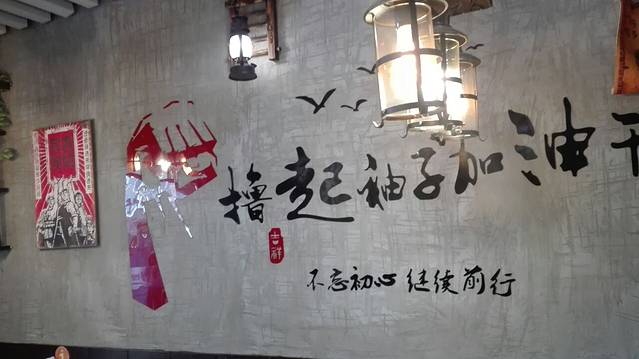 撸起袖子加油干
吉祥
不忘初心 继续前行